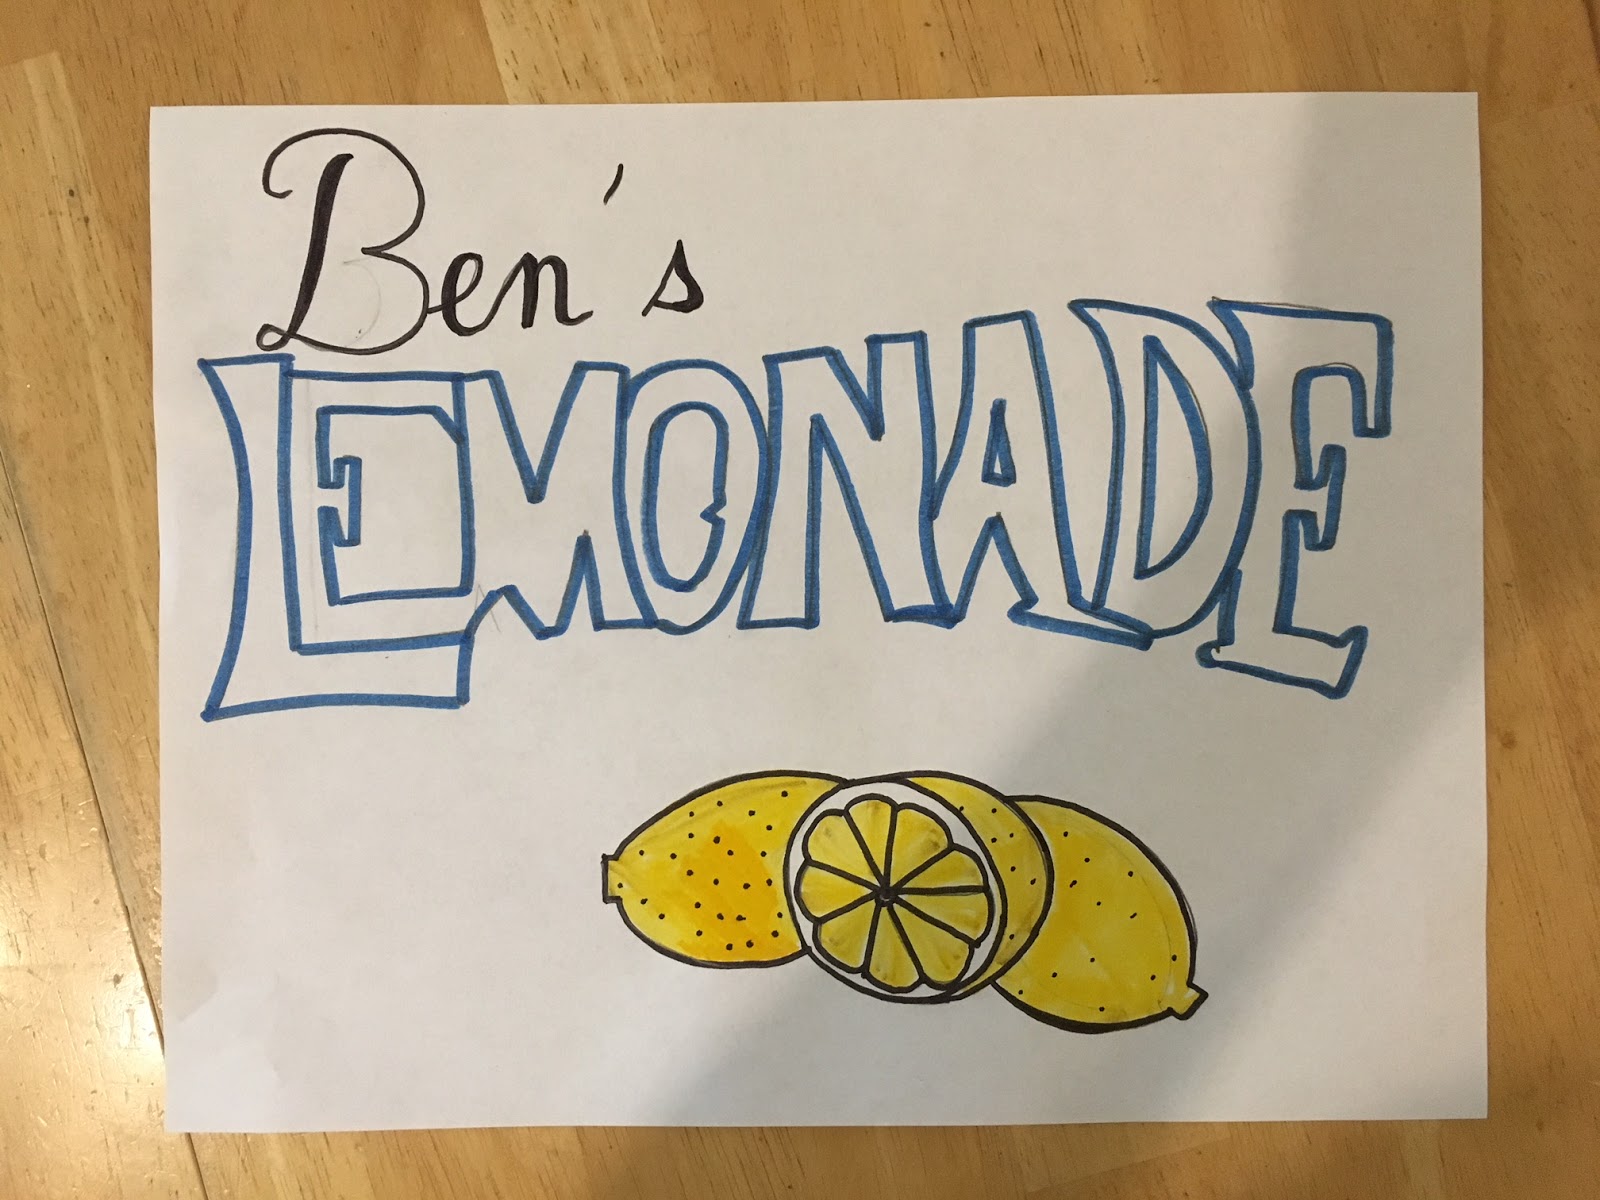 Ben's
LEMONADE